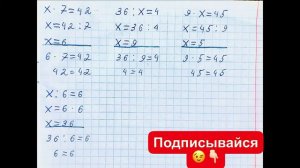 x · 7=42
x=42 : 7
x=6
6 · 7=42
42=42
36 : x=4
x=36 : 4
x=9
36 : 9=4
4=4
9 · x=45
x=45 : 9
x=5
9 · 5=45
45=45
x : 6=6
x=6 · 6
x=36
36 : 6=6
6=6
Подписывайся
😉👇